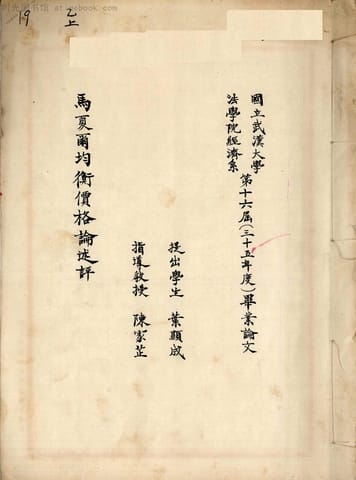 时光图书馆 atimebook.com
19
乙上
國立武漢大學
法學院經濟系
第十六屆(三十五年度)畢業論文
提出學生 葉顯成
指導教授 陳家芷
馬夏爾均衡價格論述評